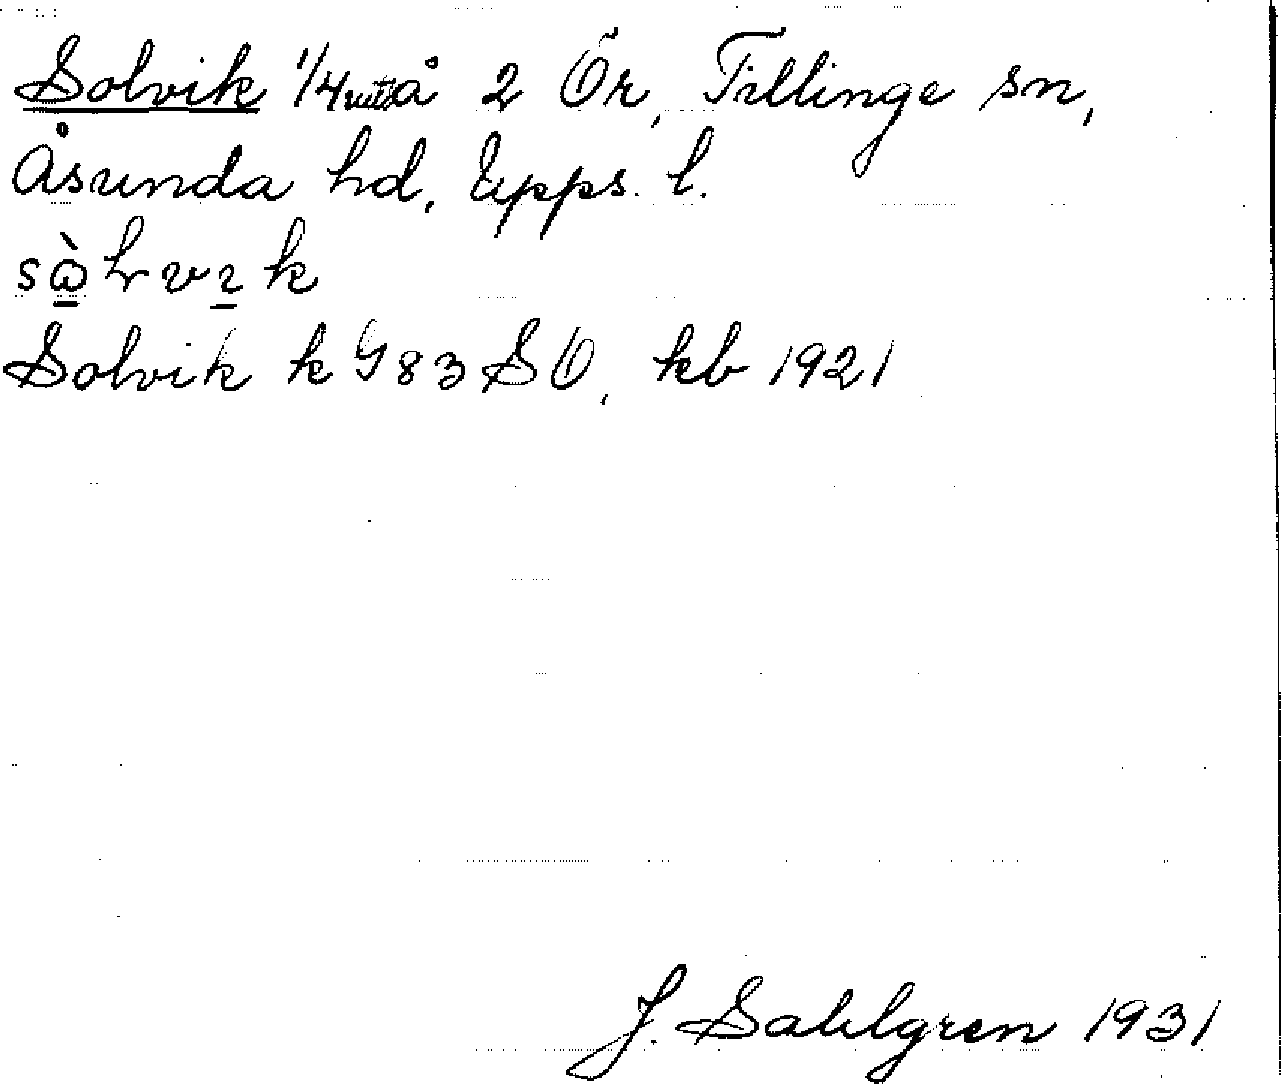 Solvik 1/4 å 2 Ör, Tillinge sn,
Åsunda hd, Upps. l.
Solvik k G 83 SO, kb 1921
J. Sahlgren 1931